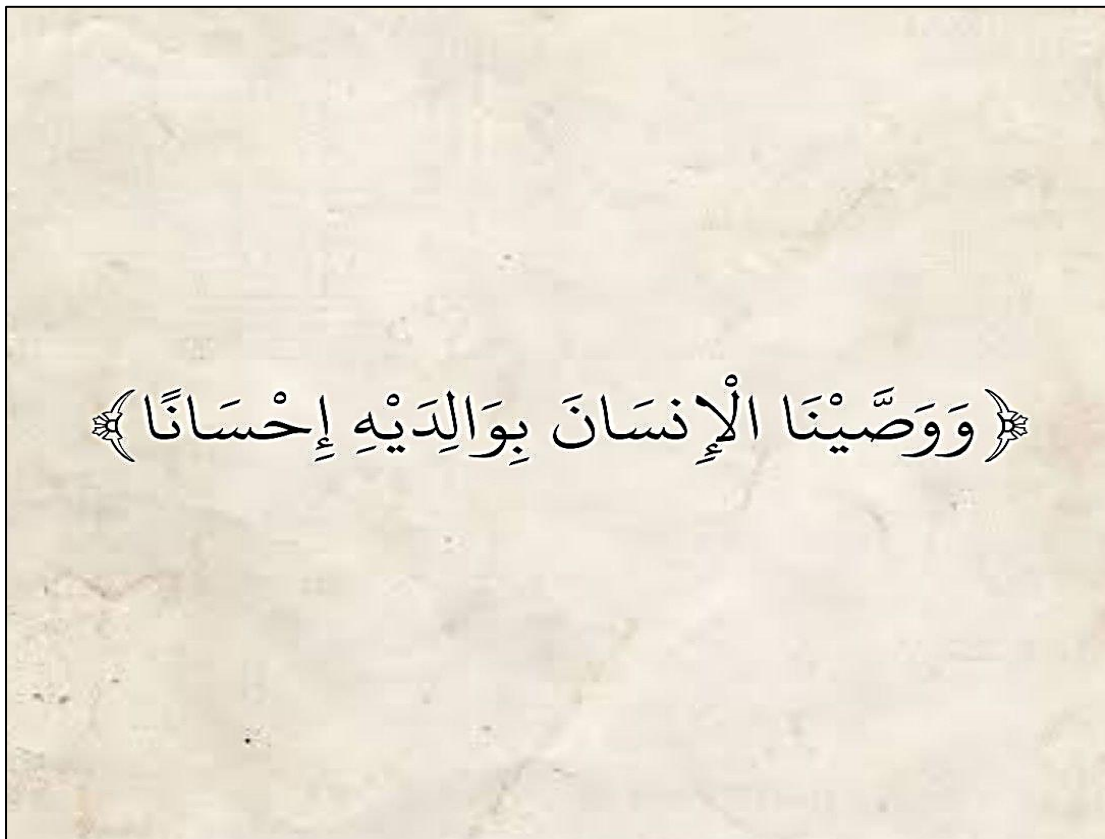 ﴿وَوَصَّيْنَا الْإِنسَانَ بِوَالِدَيْهِ إِحْسَانًا﴾